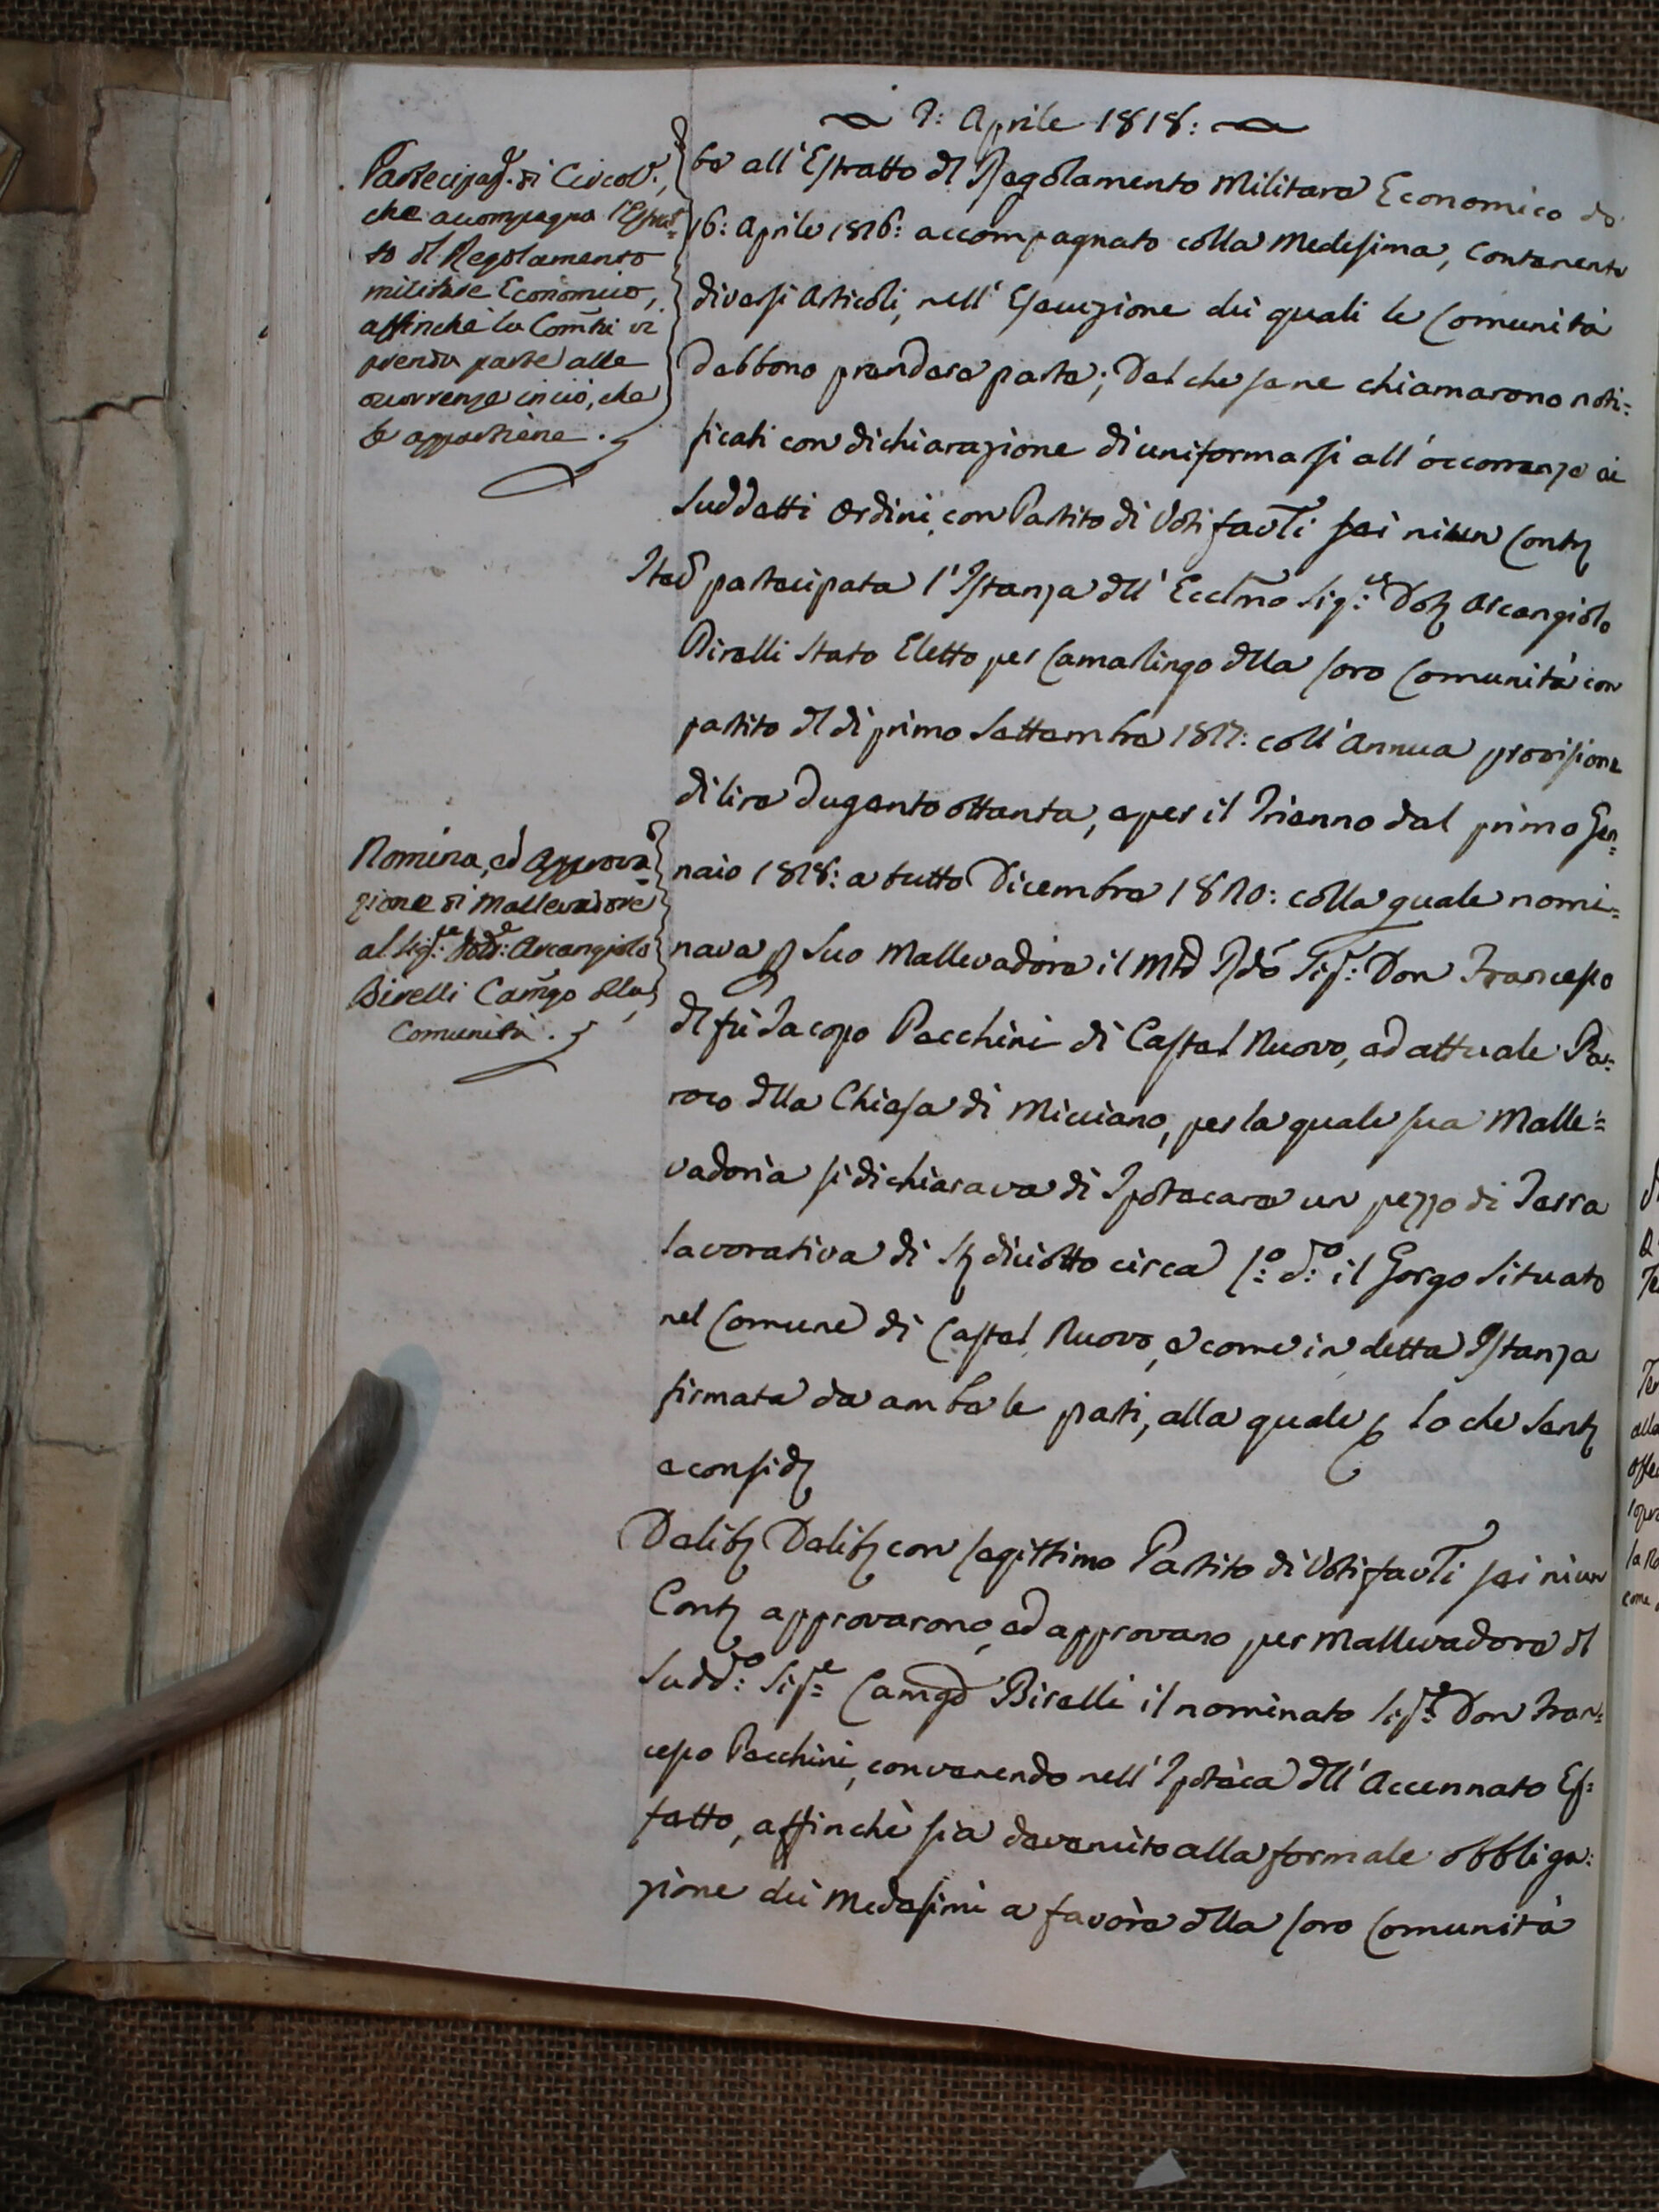 7: Aprile 1818:
Partecipaz.e di Circol.e,
che accompagna l'Estrat=
to dl Regolamento
militare Economico,
affinchè la Com̃tà vi
prenda parte alle
occorrenze in ciò, che
le appartiene.
be all'Estratto dl Regolamento Militare Economico de
16: Aprile 1816: accompagnato colla Medesima, contenente
diversi Articoli, nell'Esecuzione dei quali le Comunità
debbono prendere parte; Del che se ne chiamarono noti=
ficati con dichiarazione di uniformarsi all'occorrenze ai
suddetti Ordini, con Partito di Voti favoli sei niun Cont
Ite partecipata l'Istanza dll'Ecclmo Sig:re Dott Arcangiolo
Birelli stato Eletto per Camarlingo dlla loro Comunità con
partito dl dì primo Settembre 1817: coll'Annua provisione
di lire dugento ottanta, e per il Trienno dal primo Gen=
Nomina, ed Approva=
zione di Mallevadore
al Sig:re Dott:e Arcangiolo
Birelli Camgo dlla
Comunità.
naio 1818: a tutto Dicembre 1820: colla quale nomi=
nava p Suo Mallevadore il Mto Rdo Sig:e Don Francesco
dl fù Iacopo Pacchini di Castel Nuovo, ed attuale Pa=
roco dlla Chiesa di Micciano, per la quale sua Malle=
vadoria si dichiarava di Ipotecare un pezzo di Terra
lavorativa di St diciotto circa l:o d:o il Gorgo situato
nel Comune di Castel Nuovo, e come in detta Istanza
firmata da ambe le parti, alla quale p lo che Sent
e consid
Delib Delib con legittimo Partito di Voti favoli sei niun
Cont approvarono, ed approvano per Mallevadore dl
Sudd:o Sig:e Camgo Birelli il nominato Sig:e Don Fran=
cesco Pacchini, convenendo nell'Ipoteca dll'Accennato Ef=
fetto, affinchè sia devenuto alla formale obbliga=
zione dei Medesimi a favore dlla loro Comunità